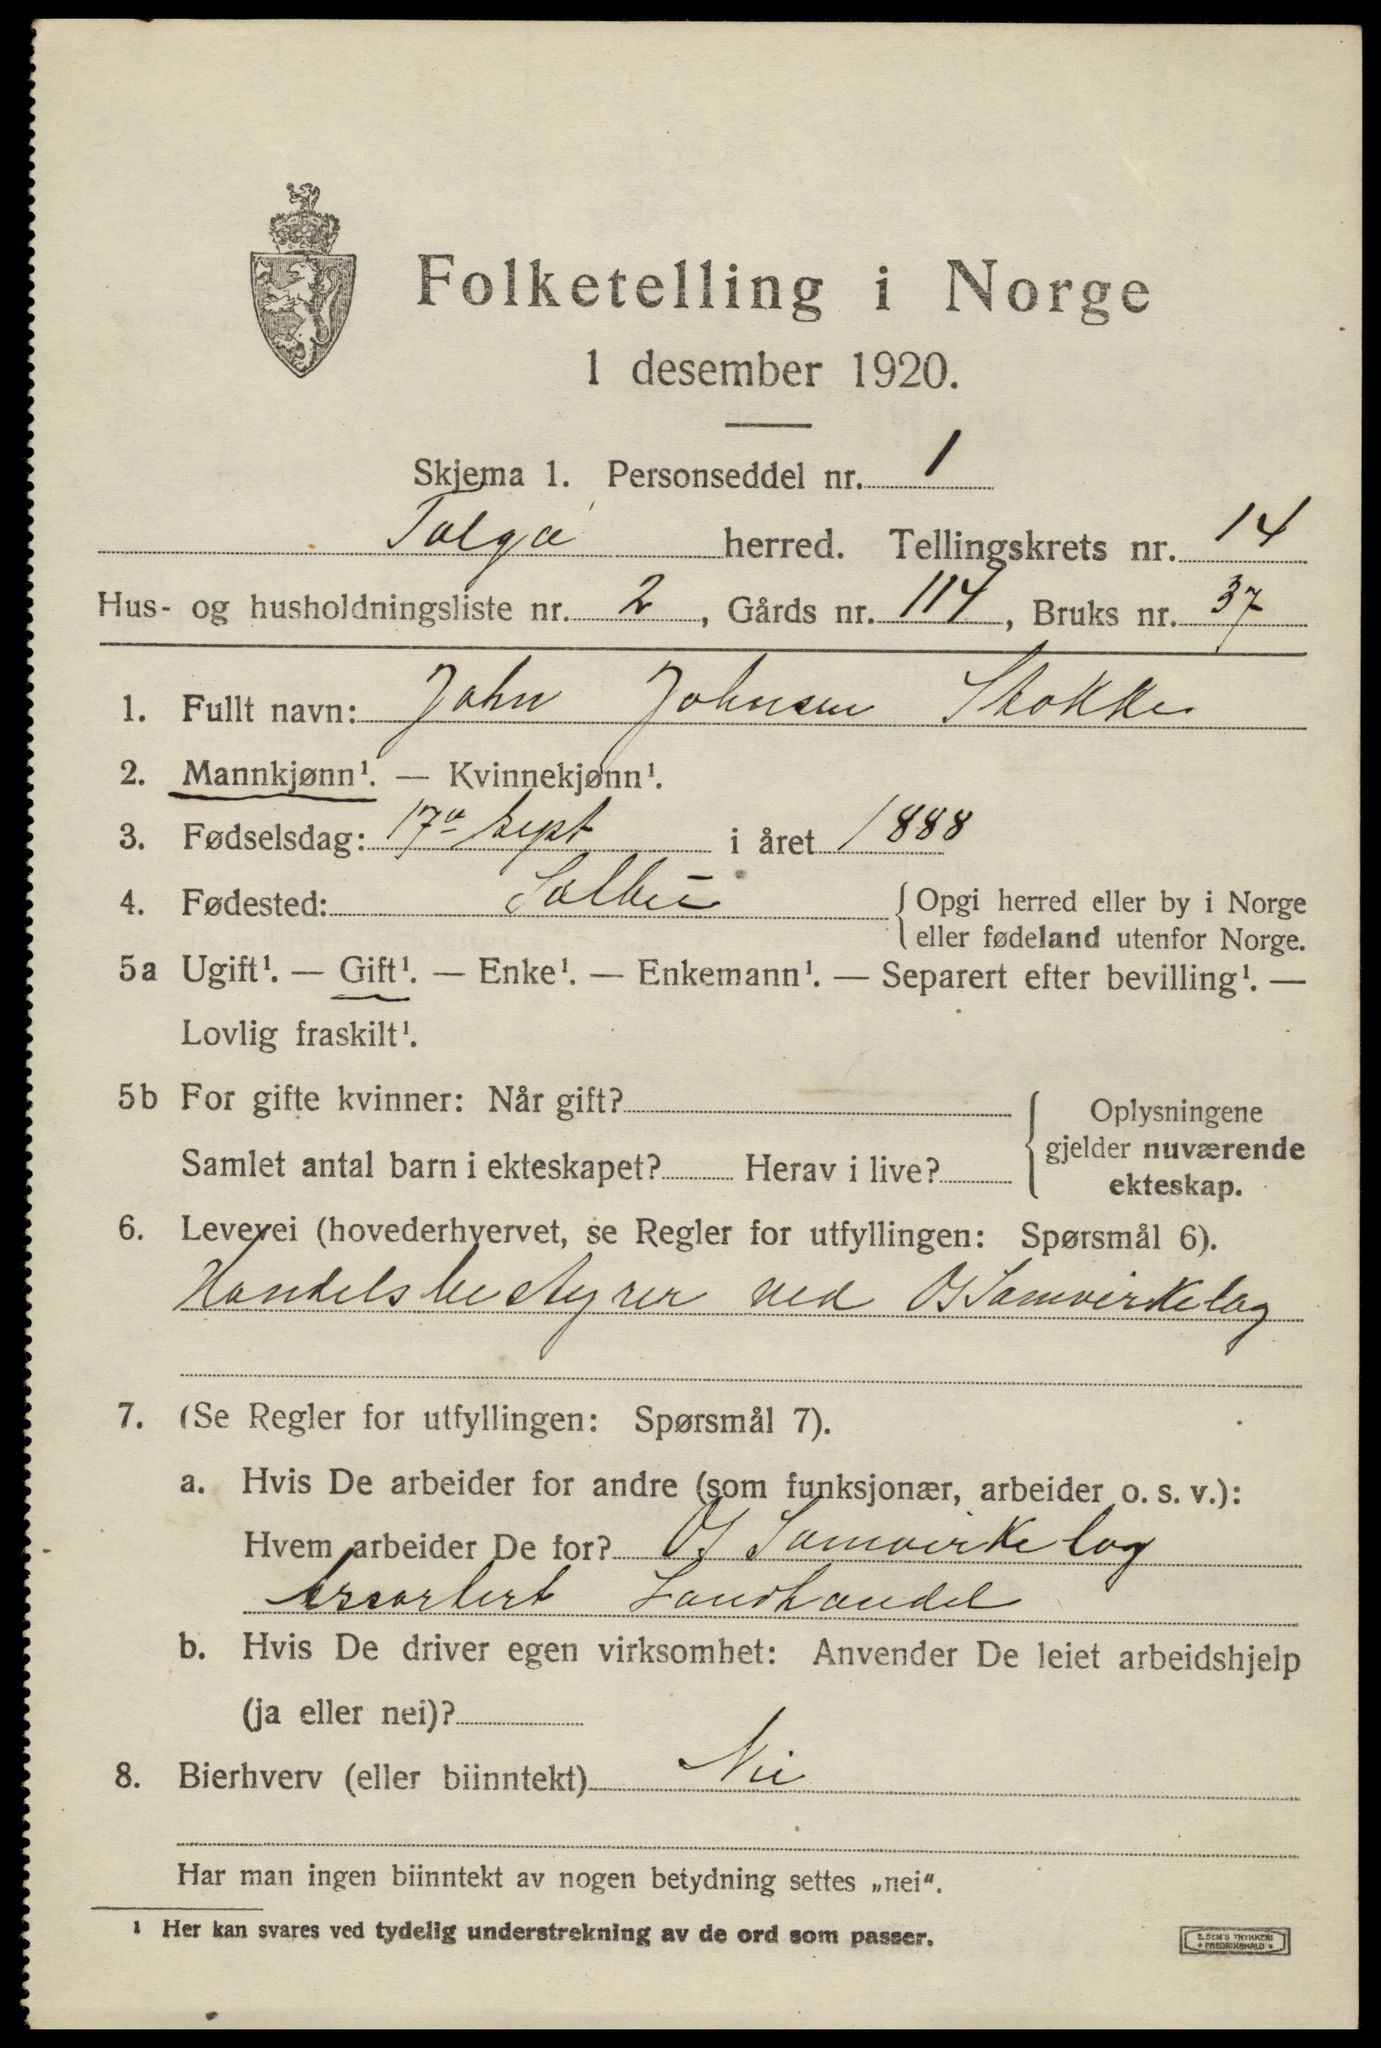 Folketelling i Norge
1 desember 1920.
Skjema 1. Personseddel nr. 1
Tolga herred. Tellingskrets nr. 14
Hus- og husholdningsliste nr. 2, Gårds nr. 114, Bruks nr. 37
1. Fullt navn: John Johnsen Stokke
2. Mannkjønn¹. — Kvinnekjønn¹.
3. Fødselsdag: 17de Sept i året 1888
4. Fødested: Selbu { Opgi herred eller by i Norge
eller fødeland utenfor Norge.
5a Ugift¹. — Gift¹. — Enke¹. — Enkemann¹. — Separert efter bevilling¹. —
Lovlig fraskilt¹.
5b For gifte kvinner: Når gift?
Samlet antal barn i ekteskapet? Herav i live?
Oplysningene
gjelder nuværende
ekteskap.
6. Levevei (hovederhvervet, se Regler for utfyllingen: Spørsmål 6).
Handelsbestyrer ved Os Samvirkelag
7. (Se Regler for utfyllingen: Spørsmål 7).
a. Hvis De arbeider for andre (som funksjonær, arbeider o. s. v.):
Hvem arbeider De for? Os Samvirkelag
Assortert Landhandel
b. Hvis De driver egen virksomhet: Anvender De leiet arbeidshjelp
(ja eller nei)?
8. Bierhverv (eller biinntekt) Nei
Har man ingen biinntekt av nogen betydning settes „nei“.
¹ Her kan svares ved tydelig understrekning av de ord som passer.
E. SEM'S TRYKKERI
FREDRIKSHALD